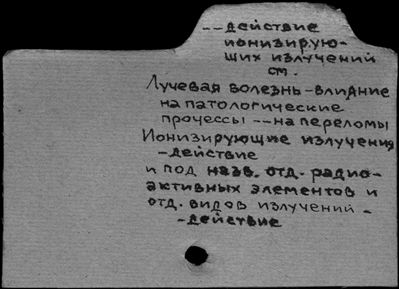 --действие
ионизирую-
щих излучений
см.
Лучевая болезнь-влияние
на патологические
процессы --на переломы
Ионизирующие излучения
-действие
и под назв. отд. радио-
активных элементов и
отд. видов излучений -
-действие